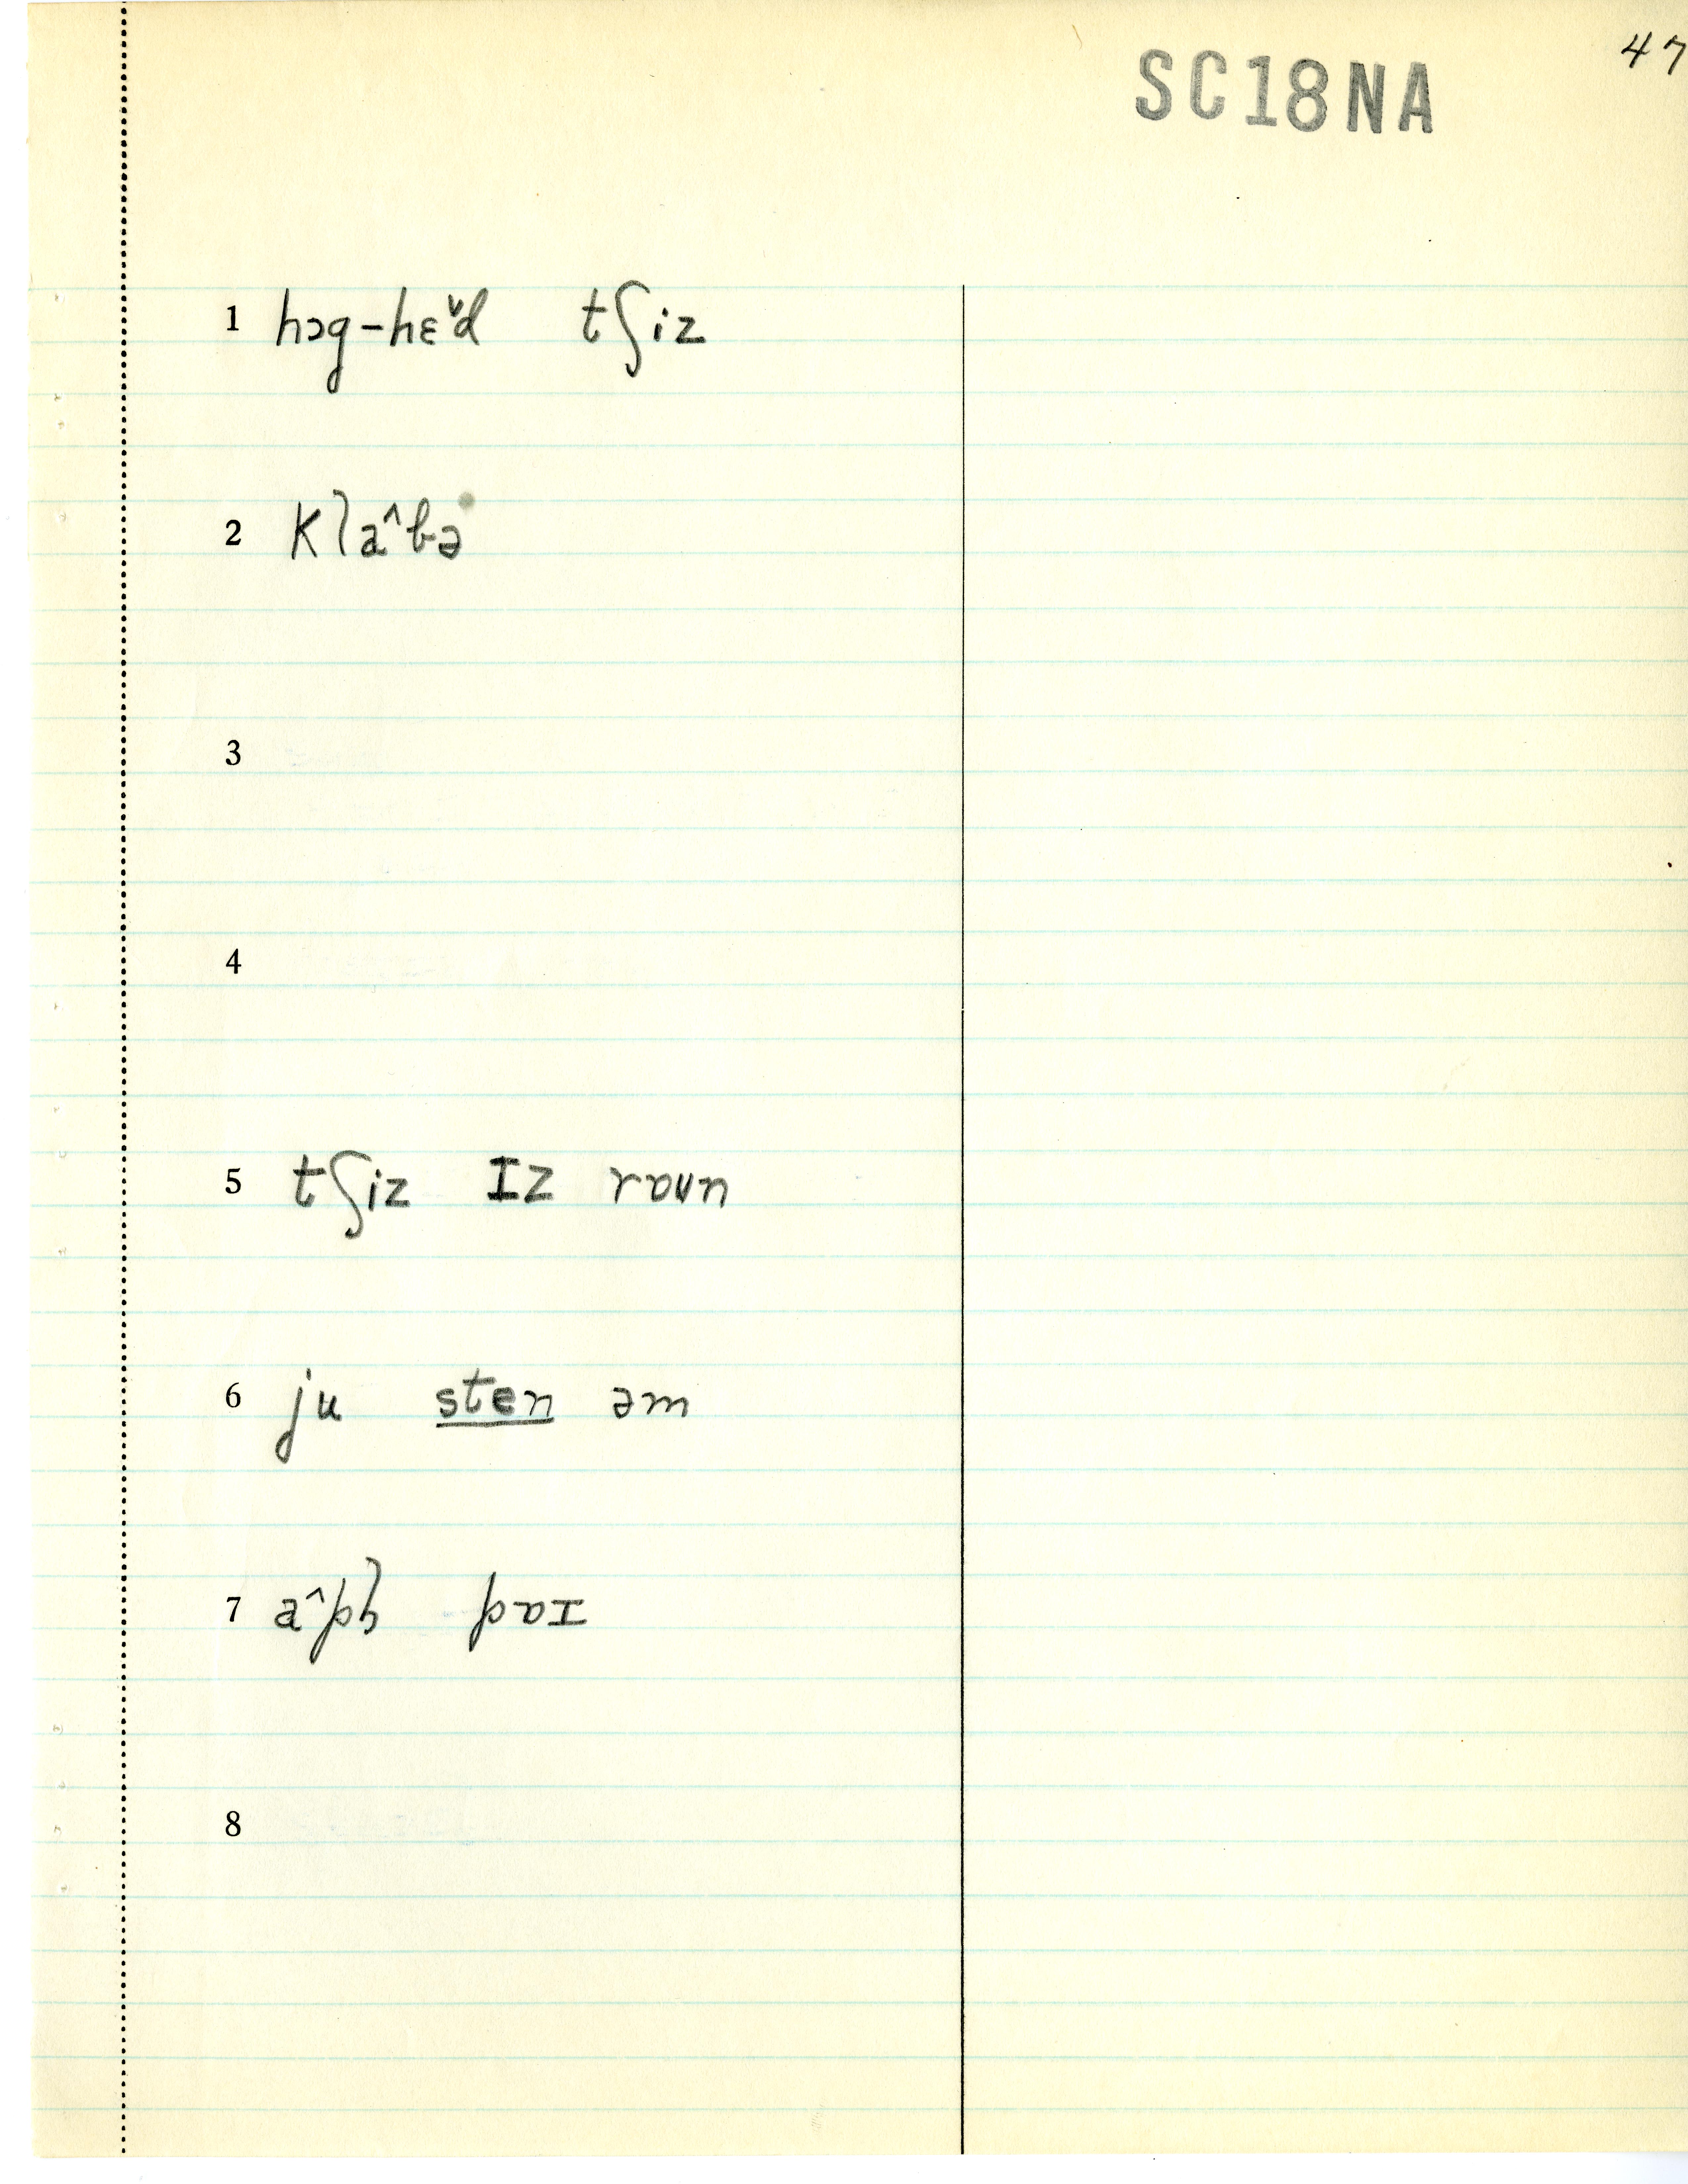 47
SC18NA
1 hɔg-hɛ˅d tʃiz
2 klaˆbə
3
4
5 tʃiz ɪz rɒun
6 ju sten əm
7 aˆpl̩ pɒɪ
8